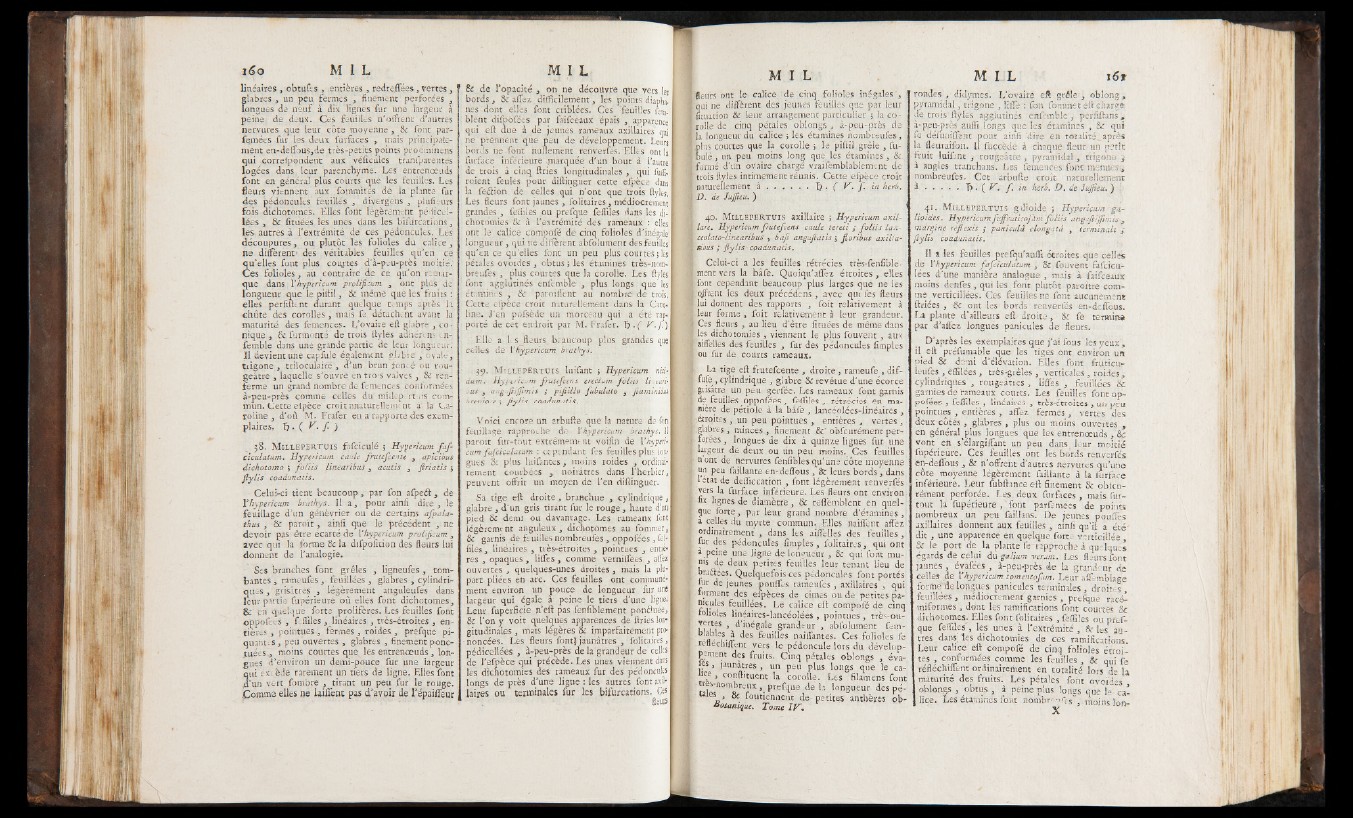 160 M I L
linéaires, obtuſes, entières, redreſſées, vertes,
glabres, un peu fermes, finement perforées,
longues de neuf à dix lignes ſur une largeur à
peine de deux. Ces feuilles n'offrent d'autres
nervures que leur côte moyenne, & ſont par-
ſemées ſur les deux ſurfaces, mais principale-
ment en-deſſous, de très-petits points proéminens
qui correſpondent aux véſicules tranſparentes
logées dans leur parenchyme. Les entrenœuds
ſont en général plus courts que les feuilles. Les
fleurs viennent aux ſommités de la plante ſur
des pédoncules feuillés, divergens, pluſieurs
fois dichotomes. Elles ſont légèrement pédicel-
lées, & ſituées les unes dans les bifurcations,
les autres à l'extrémité de ces pédoncules. Les
découpures, ou plutôt les folioles du calice,
ne diffèrent des véritables feuilles qu'en ce
qu'elles ſont plus courtes d'à-peu-près moitié.
Ces folioles, au contraire de ce qu'on remar-
que dans l'hypericum prolificum, ont plus de
longueur que le piſtil, & même que les fruits :
elles perſiſtent durant quelque temps après la
chûte des corolles, mais ſe détachent avant la
maturité des ſemences. L'ovaire eſt glabre, co-
nique, & ſurmonté de trois ſtyles adhérens en-
ſemble dans une grande partie de leur longueur.
Il devient une capſule également glabre, ovale,
trigone, triloculaire, d'un brun foncé ou rou-
geâtre, laquelle s'ouvre en trois valves, & ren-
ferme un grand nombre de ſemences conformées
à-peu-près comme celles du millepertuis com-
mun. Cette eſpèce croît naturellement à la Ca-
roline, d'où M. Fraſer en a rapporté des exem-
plaires. ♄. ( V. ſ. )
38. MILLEPERTUIS faſciculé ; Hypericum faſ-
ciculatum. Hypericum caule fruteſcente, apicibus
dichotomo ; foliis linearibus, acutis, ſtriatis ;
ſtylis coadunatis.
Celui-ci tient beaucoup, par ſon aſpect, de
l'hypericum brathys. Il a, pour ainſi dire, le
feuillage d'un génévrier ou de certains aſpala-
thus, & paroît, ainſi que le précédent, ne
devoir pas être écarté de l'hypericum prolificum,
avec qui la forme & la diſpoſition des fleurs lui
donnent de l'analogie.
Ses branches ſont grêles, ligneuſes, tom-
bantes, rameuſes, feuillées, glabres, cylindri-
ques, griſâtres, légèrement anguleuſes dans
leur partie ſupérieure où elles ſont dichotomes,
& en quelque ſorte prolifères. Les feuilles ſont
oppoſées, ſeſſiles, linéaires, très-étroites, en-
tières, pointues, fermes, roides, preſque pi-
quantes, peu ouvertes, glabres, finement ponc-
tuées, moins courtes que les entrenœuds, lon-
gues d'environ un demi-pouce ſur une largeur
qui excède rarement un tiers de ligne. Elles ſont
d'un vert ſombre, tirant un peu ſur le rouge.
Comme elles ne laiſſent pas d'avoir de l'épaiſſeur
M I L
& de l'opacité, on ne découvre que vers les
bords, & aſſez difficilement, les points diapha-
nes dont elles ſont criblées. Ces feuilles ſem-
blent diſpoſées par faiſceaux épais, apparence
qui eſt due à de jeunes rameaux axillaires qui
ne prennent que peu de développement. Leurs
bords ne ſont nullement renverſés. Elles ont la
ſurface inférieure marquée d'un bout à l'autre
de trois à cinq ſtries longitudinales, qui ſuffi-
roient ſeules pour diſtinguer cette eſpèce dans
la ſection de celles qui n'ont que trois ſtyles.
Les fleurs ſont jaunes, ſolitaires, médiocrement
grandes, ſeſſiles ou preſque ſeſſiles dans les di-
chotomies & à l'extrémité des rameaux : elles
ont le calice compoſé de cinq folioles d'inégale
longueur, qui ne diffèrent abſolument des feuilles
qu'en ce qu'elles ſont un peu plus courtes ; les
pétales ovoïdes, obtus ; les étamines très-nom-
breuſes, plus courtes que la corolle. Les ſtyles
ſont agglutinés enſemble, plus longs que les
étamines, & paroiſſent au nombre de trois.
Cette eſpèce croît naturellement dans la Caro-
line. J'en poſsède un morceau qui a été rap-
porté de cet endroit par M. Fraſer. ♄. ( V. ſ. )
Elle a les fleurs beaucoup plus grandes que
celles de l'hypericum brathys.
39. MILLEPERTUIS luiſant ; Hypericum niti-
dum. Hypericum fruteſcens erectum foliis lineari-
bus, anguſtiſſimis ; piſtillo ſubulato, ſtaminibus
breviore ; ſtylis coadunatis.
Voici encore un arbuſte que la nature de ſon
feuillage rapproche de l'hypericum brathys. Il
paroît ſur-tout extrêmement voiſin de l'hyperi-
cum faſciculatum : cependant ſes feuilles plus lon-
gues & plus luiſantes, moins roides, ordinai-
rement courbées, noirâtres dans l'herbier,
peuvent offrir un moyen de l'en diſtinguer.
Sa tige eſt droite, branchue, cylindrique,
glabre, d'un gris tirant ſur le rouge, haute d'un
pied & demi ou davantage. Les rameaux ſont
légèrement anguleux, dichotomes au ſommet,
& garnis de feuilles nombreuſes, oppoſées, ſeſ-
ſiles, linéaires, très-étroites, pointues, entiè-
res, opaques, liſſes, comme verniſſées, aſſez
ouvertes, quelques-unes droites, mais la plu-
part pliées en arc. Ces feuilles ont communé-
ment environ un pouce de longueur ſur une
largeur qui égale à peine le tiers d'une ligne.
Leur ſuperficie n'eſt pas ſenſiblement ponctuée,
& l'on y voit quelques apparences de ſtries lon-
gitudinales, mais légères & imparfaitement pro-
noncées. Les fleurs ſont jaunâtres, ſolitaires,
pédicellées, à-peu-près de la grandeur de celles
de l'eſpèce qui précède. Les unes viennent dans
les dichotomies des rameaux ſur des pédoncules
longs de près d'une ligne : les autres ſont axil-
laires ou terminales ſur les bifurcations. Ces
fleurs
M I L
fleurs ont le calice de cinq folioles inégales,
qui ne diffèrent des jeunes feuilles que par leur
ſituation & leur arrangement particulier ; la co-
rolle de cinq pétales oblongs, à-peu-près de
la longueur du calice ; les étamines nombreuſes,
plus courtes que la corolle ; le piſtil grêle, ſu-
bulé, un peu moins long que les étamines, &
formé d'un ovaire chargé vraiſemblablement de
trois ſtyles intimement réunis. Cette eſpèce croît
naturellement à . . . . . . ♄. ( V. ſ. in herb.
D. de Juſſieu. )
40. MILLEPERTUIS axillaire ; Hypericum axil-
lare. Hypericum fruteſcens caule tereti ; foliis lan-
ceolato-linearibus, baſi anguſtatis ; floribus axilla-
ribus ; ſtylis coadunatis.
Celui-ci a les feuilles rétrécies très-ſenſible-
ment vers la baſe. Quoiqu'aſſez étroites, elles
ſont cependant beaucoup plus larges que ne les
offrent les deux précédens, avec qui ſes fleurs
lui donnent des rapports, ſoit relativement à
leur forme, ſoit relativement à leur grandeur.
Ces fleurs, au lieu d'être ſituées de même dans
les dichotomies, viennent le plus ſouvent, aux
aiſſelles des feuilles, ſur des pédoncules ſimples
ou ſur de courts rameaux.
La tige eſt fruteſcente, droite, rameuſe, dif-
fuſe, cylindrique, glabre & revêtue d'une écorce
griſâtre un peu gerſée. Les rameaux ſont garnis
de feuilles oppoſées, ſeſſiles, rétrécies en ma-
nière de pétiole à la baſe, lancéolées-linéaires,
étroites, un peu pointues, entières, vertes,
glabres, minces, finement & obſcurément per-
forées, longues de dix à quinze lignes ſur une
largeur de deux ou un peu moins. Ces feuilles
n'ont de nervures ſenſibles qu'une côte moyenne
un peu ſaillante en-deſſous, & leurs bords, dans
l'état de deſſiccation, ſont légèrement renverſés
vers la ſurface inférieure. Les fleurs ont environ
ſix lignes de diamètre, & reſſemblent en quel-
que ſorte, par leur grand nombre d'étamines,
à celles du myrte commun. Elles naiſſent aſſez
ordinairement, dans les aiſſelles des feuilles,
ſur des pédoncules ſimples, ſolitaires, qui ont
à peine une ligne de longueur, & qui ſont mu-
nis de deux petites feuilles leur tenant lieu de
bractées. Quelquefois ces pédoncules ſont portés
ſur de jeunes pouſſes rameuſes, axillaires, qui
forment des eſpèces de cimes ou de petites pa-
nicules feuillées. Le calice eſt compoſé de cinq
folioles linéaires-lancéolées, pointues, très-ou-
vertes, d'inégale grandeur, abſolument ſem-
blables à des feuilles naiſſantes. Ces folioles ſe
réfléchiſſent vers le pédoncule lors du dévelop-
pement des fruits. Cinq pétales oblongs, éva-
ſés, jaunâtres, un peu plus longs que le ca-
lice, conſtituent la corolle. Les filamens ſont
très-nombreux, preſque de la longueur des pé-
tales, & ſoutiennent de petites anthères ob-
Botanique. Tome IV.
M I L 161
rondes, didymes. L'ovaire eſt grêle, oblong,
pyramidal, trigone, liſſe : ſon ſommet eſt chargé
de trois ſtyles agglutinés enſemble, perſiſtans,
à-peu-près auſſi longs que les étamines, & qui
ſe déſuniſſent pour ainſi dire en totalité après
la fleuraiſon. Il ſuccède à chaque fleur un petit
fruit luiſant, rougeâtre, pyramidal, trigone,
à angles tranchans. Les ſemences ſont menues,
nombreuſes. Cet arbuſte croît naturellement
à . . . . . ♄. ( V. ſ. in herb. D. de Juſſieu. )
41. MILLEPERTUIS galioïde ; Hypericum ga-
lioides. Hypericum ſuffruticoſum foliis anguſtiſſimis,
margine reflexis ; paniculâ elongatâ, terminali ;
ſtylis coadunatis.
Il a les feuilles preſqu'auſſi étroites que celles
de l'hypericum faſciculatum, & ſouvent faſcicu-
lées d'une manière analogue, mais à faiſceaux
moins denſes, qui les font plutôt paroître com-
me verticillées. Ces feuilles ne ſont aucunement
ſtriées, & ont les bords renverſés en-deſſous.
La plante d'ailleurs eſt droite, & ſe termine
par d'aſſez longues panicules de fleurs.
D'après les exemplaires que j'ai ſous les yeux,
il eſt préſumable que les tiges ont environ un
pied & demi d'élévation. Elles ſont fruticu-
leuſes, effilées, très-grêles, verticales, roides,
cylindriques, rougeâtres, liſſes, feuillées &
garnies de rameaux courts. Les feuilles ſont op-
poſées, ſeſſiles, linéaires, très-étroites, un peu
pointues, entières, aſſez fermes, vertes des
deux côtés, glabres, plus ou moins ouvertes,
en général plus longues que les entrenœuds, &
vont en s'élargiſſant un peu dans leur moitié
ſupérieure. Ces feuilles ont les bords renverſés
en-deſſous, & n'offrent d'autres nervures qu'une
côte moyenne légèrement ſaillante à la ſurface
inférieure. Leur ſubſtance eſt finement & obſcu-
rément perforée. Les deux ſurfaces, mais ſur-
tout la ſupérieure, ſont parſemées de points
nombreux un peu ſaillans. De jeunes pouſſes
axillaires donnent aux feuilles, ainſi qu'il a été
dit, une apparence en quelque ſorte verticillée,
& le port de la plante ſe rapproche à quelques
égards de celui du galium verum. Les fleurs ſont
jaunes, évaſées, à-peu-près de la grandeur de
celles de l'hypericum tomentoſum. Leur aſſemblage
forme de longues panicules terminales, droites,
feuillées, médiocrement garnies, preſque racé-
miformes, dont les ramifications ſont courtes &
dichotomes. Elles ſont ſolitaires, ſeſſiles ou preſ-
que ſeſſiles, les unes à l'extrémité, & les au-
tres dans les dichotomies de ces ramifications.
Leur calice eſt compoſé de cinq folioles étroi-
tes, conformées comme les feuilles, & qui ſe
réfléchiſſent ordinairement en totalité lors de la
maturité des fruits. Les pétales ſont ovoïdes,
oblongs, obtus, à peine plus longs que le ca-
lice. Les étamines ſont nombreuſes, moins lon-
X